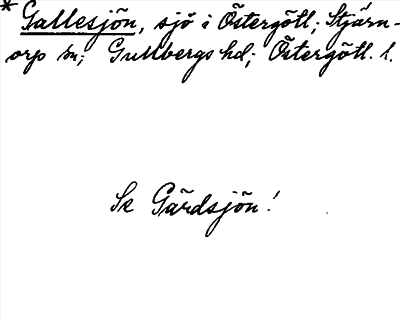 * Gallesjön, sjö i Östergötl; Stjärn-
orp sn; Gullbergs hd; Östergötl. l.
Se Gärdsjön!